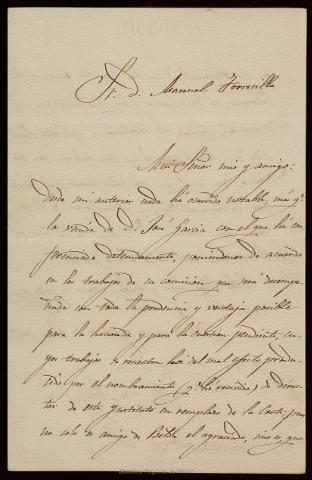 Sr. D. Manuel Torrecilla
Mui Señor mio y amigo:
Desde mi anterior nada há ocurrido notable, mas q.e
la venida de D. José Garcia con el que hé con
ferenciado detenidamente, poniendonos de acuerdo
en los trabajos de su comision que será desempe
ñada con toda la prudencia y ventaja posible
para la hacienda y para la cuestion pendiente, cu
yos trabajos se resienten hoi del mal efecto produ
cido por el nombramiento q.e há recaido, de direc
tor de este Instituto en remplazo de la Corte; pues
no solo es amigo de el agraciado, sino es, que